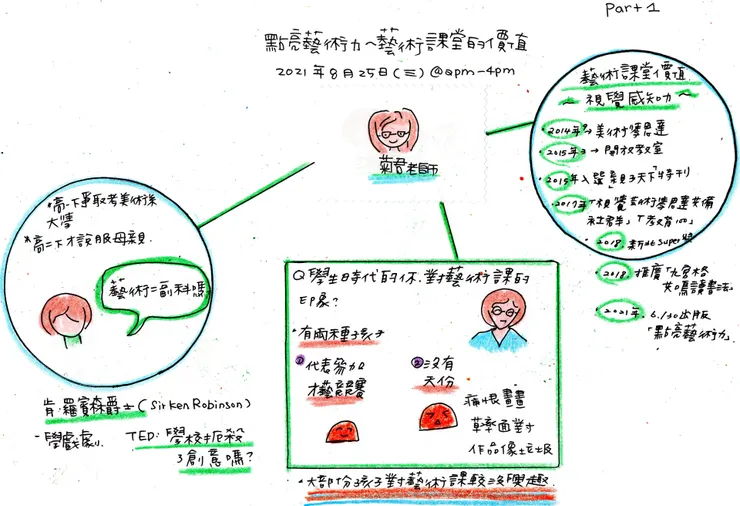 Part 1
點亮藝術力～藝術課堂的價值
2021年8月25日(三) @2pm-4pm
菊君老師
藝術課堂價值
視覺感知力
2014年 → 美術學思達
2015年 → 開放教室
2015年入選親子天下特刊
2017年「視覺藝術學思達共備
社群」「教育100」
2018. 新北super獎
2018. 推廣「九宮格
共鳴讀書法」
2021年. 6/30出版
「點亮藝術力」
*高一下爭取考美術系
大學
*高二下才說服母親.
藝術=副科嗎
肯.羅賓森爵士(Sir Ken Robinson)
-學戲劇.
TED: 學校扼殺
了創意嗎?
Q學生時代的你.對藝術課的
印象?
·有兩種孩子
①代表參加
才藝競賽
②沒有
天份
痛恨畫畫
草率面對
作品像垃圾
·大部份孩子對藝術課較沒興趣.